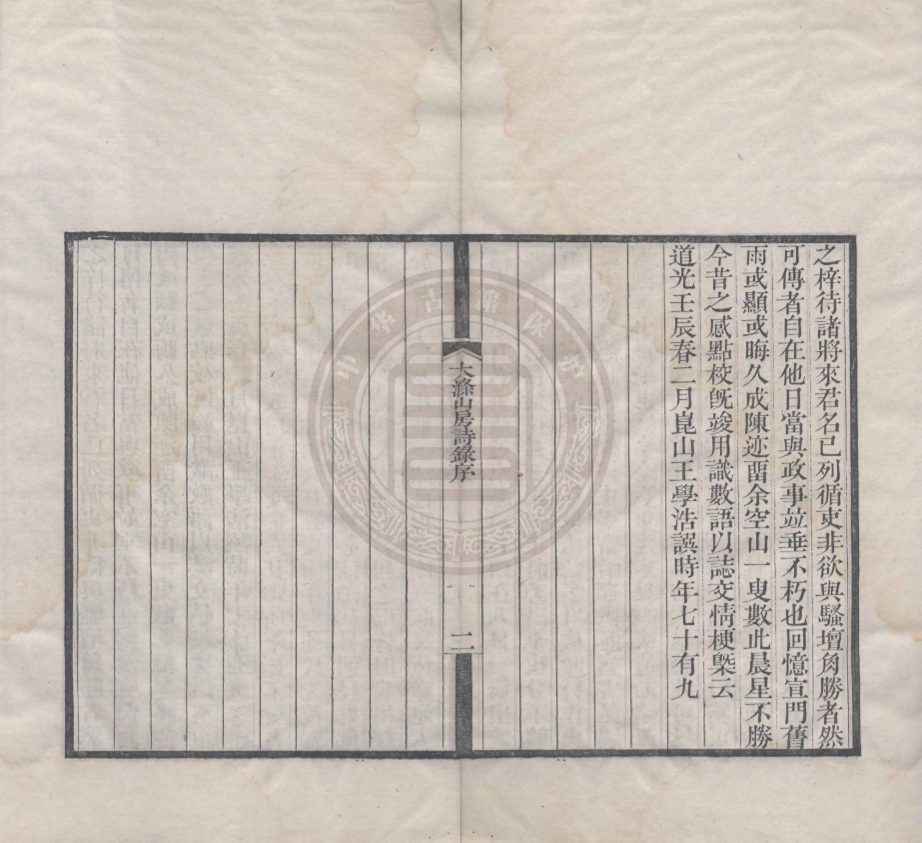 之梓待諸將來君名已列循吏非欲與騷壇角勝者然
可傳者自在他日當與政事並垂不朽也回憶宣門舊
雨或顯或晦久成陳迹畱余空山一叟數此晨星不勝
今昔之感點校旣竣用識數語以誌交情梗槩云
道光壬辰春二月崑山王學浩譔時年七十有九
大滌山房詩錄序
二